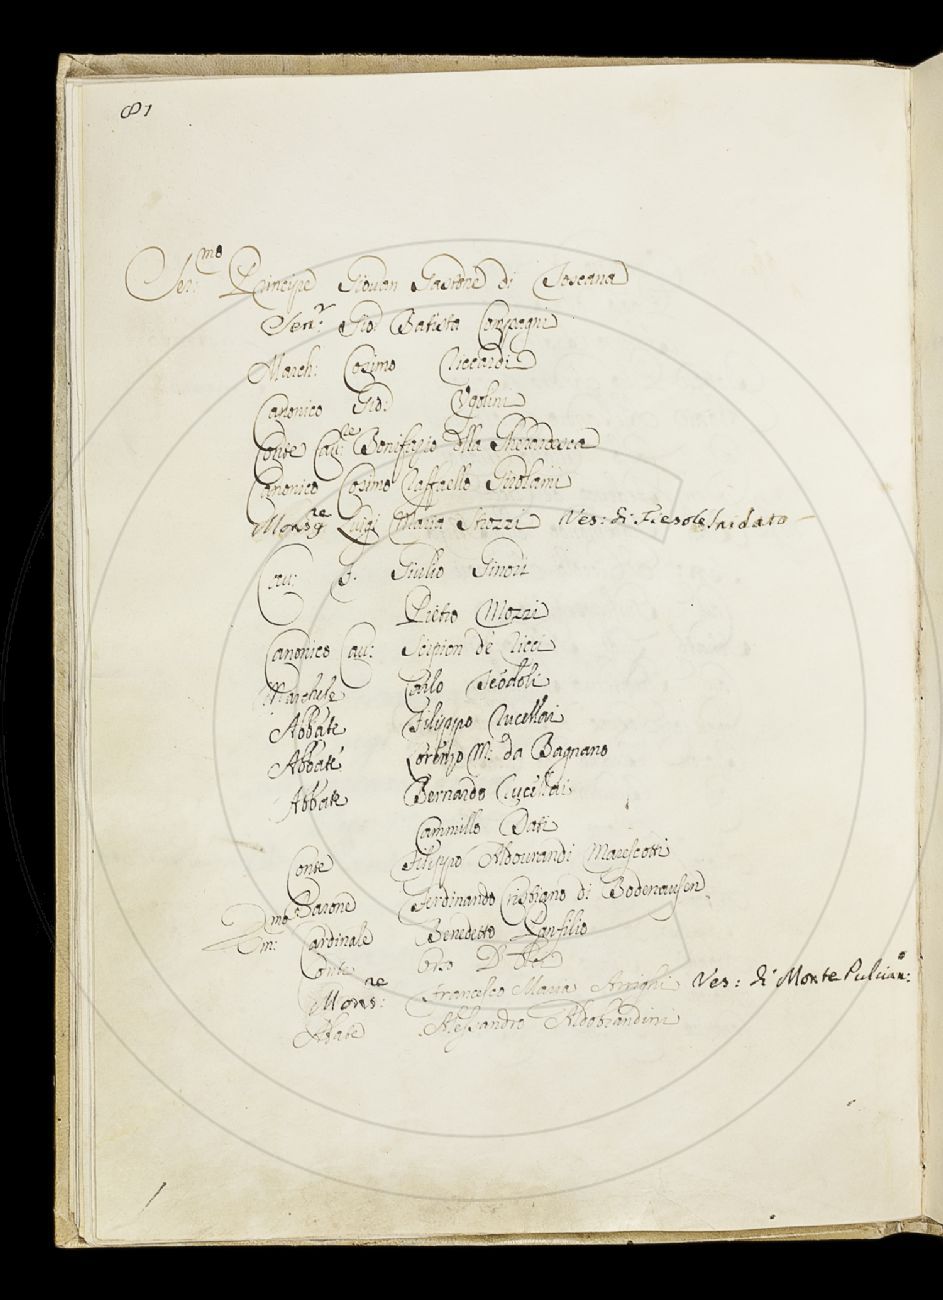 81
Ser:mo Principe Giovan Gastone di Toscana
Sen:r Gio: Batista Compagni
March: Cosimo Riccardi
Canonico Gio: Ugolini
Conte Cau:re Bonifazio della Gherardesca
Canonico Cosimo Raffaello Girolami
Monsg.re Luigi Maria Strozzi Ves: di Fiesole
Cau: F. Giulio Ginori
Pietro Mozzi
Canonico Cau: Scipion de Ricci
Marchese Carlo Teodoli
Abbate Filippo Rucellai
Abbate Lorenzo M: da Bagnano
Abbate Bernardo Rucellai
Cammillo Dati
Conte Filippo Aldourandi Marescotti
Barone Ferdinando di Bodenausen
Em:mo Cardinale Benedetto Panfilio
Conte Orso D'Elci
Mons:re Francesco Maria Arrighi Ves: di Monte Pulcian:o
Abate Alessandro Aldobrandini